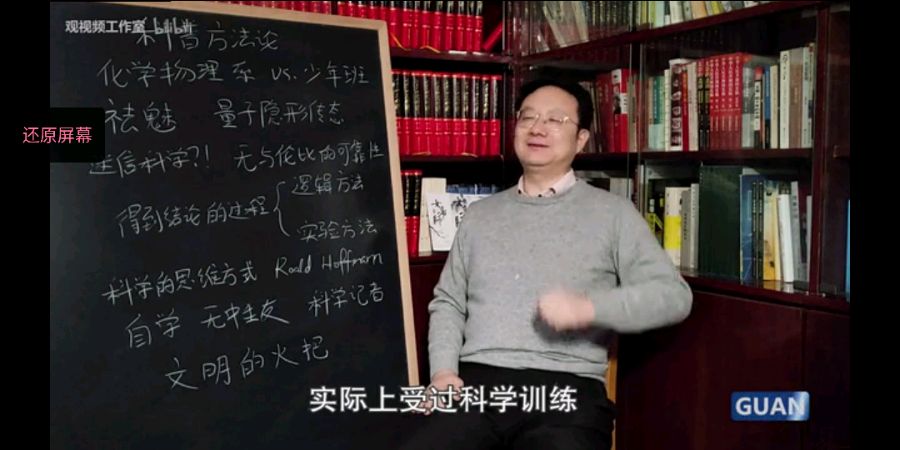 观视频工作室
bilibili
科普方法论
化学物理系 vs. 少年班
祛魅 量子隐形传态
迷信科学?! 无与伦比的可靠性
得到结论的过程 { 逻辑方法
实验方法
科学的思维方式 Roald Hoffmann
自学 无中生友 科学记者
文明的火把
还原屏幕
实际上受过科学训练
GUAN